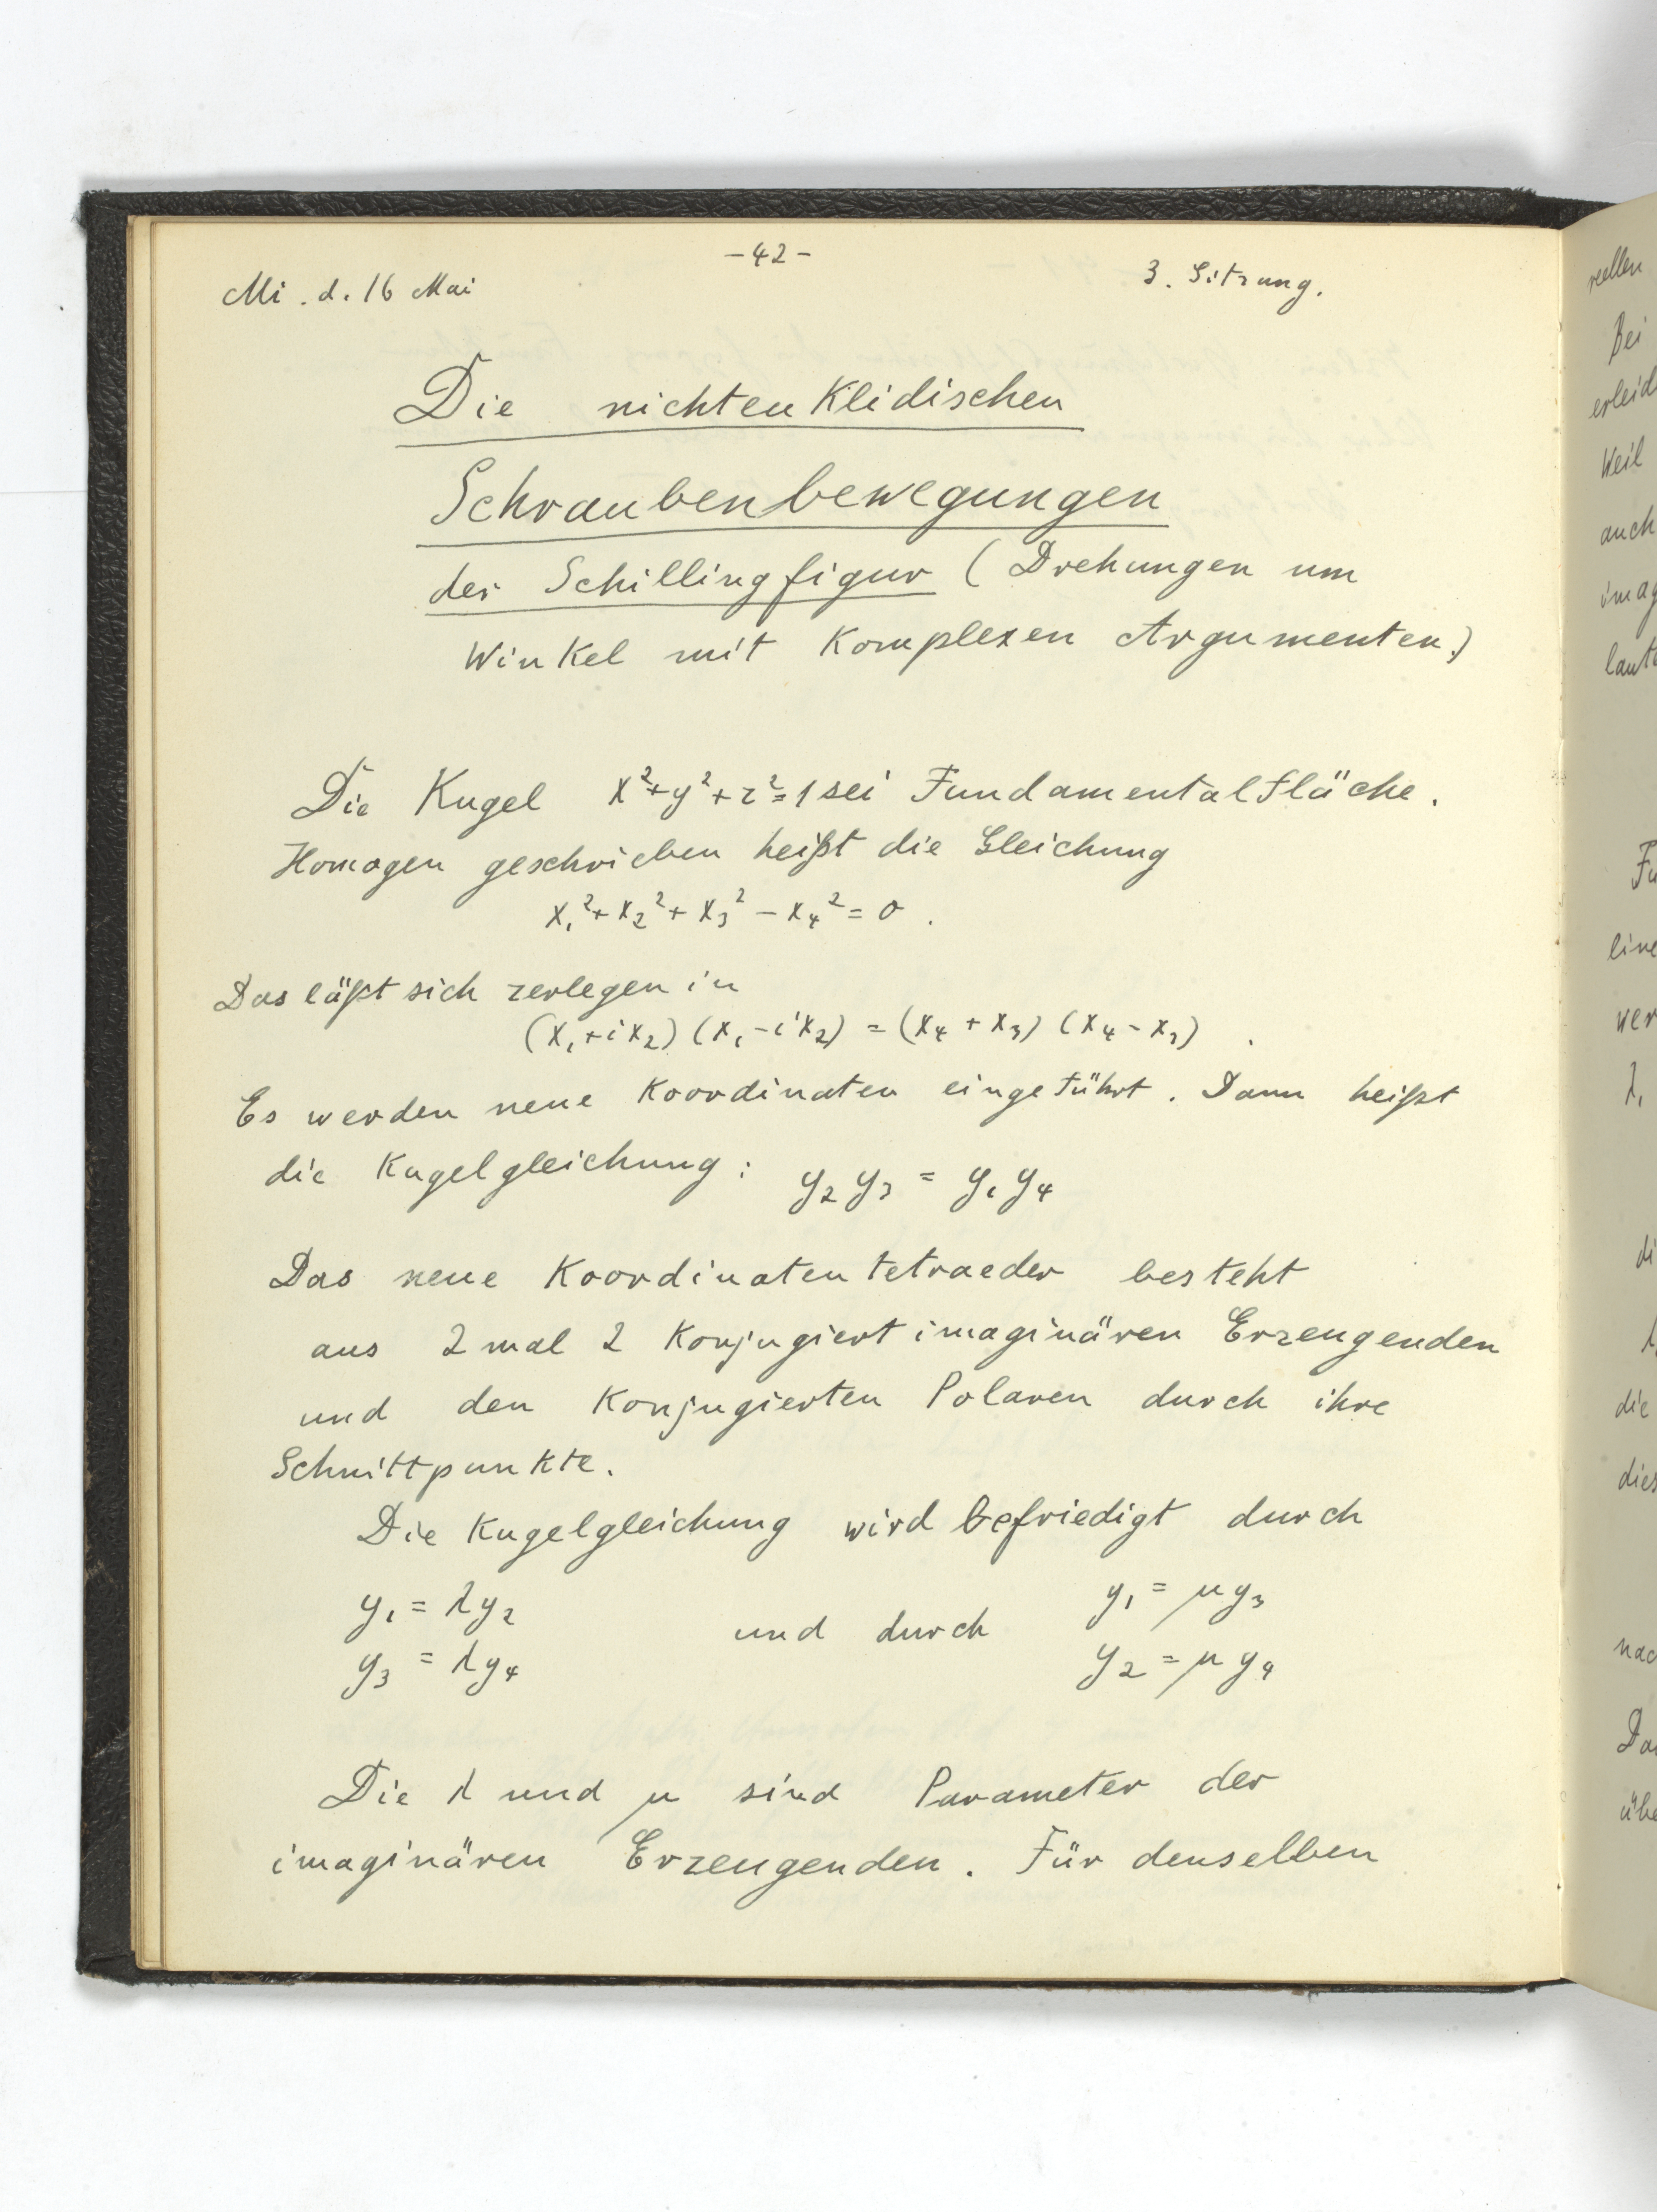 -42-
Mi. d. 16 Mai
3. Sitzung.
Die nichteuklidischen
Schraubenbewegungen
der Schillingfigur (Drehungen um
Winkel mit komplexen Argumenten.)
Die Kugel x²+y²+z²=1 sei Fundamentalfläche.
Homogen geschrieben heißt die Gleichung
x₁²+x₂²+x₃²-x₄²=0.
Das läßt sich zerlegen in
(x₁+ix₂)(x₁-ix₂)=(x₄+x₃)(x₄-x₃).
Es werden neue Koordinaten eingeführt. Dann heißt
die Kugelgleichung: y₂y₃=y₁y₄
Das neue Koordinatentetraeder besteht
aus 2 mal 2 konjugiert imaginären Erzeugenden
und den konjugierten Polaren durch ihre
Schnittpunkte.
Die Kugelgleichung wird befriedigt durch
y₁=λy₂ y₁=μy₃
und durch
y₃=λy₄ y₂=μy₄
Die λ und μ sind Parameter der
imaginären Erzeugenden. Für denselben
reellen
Bei
auch
die